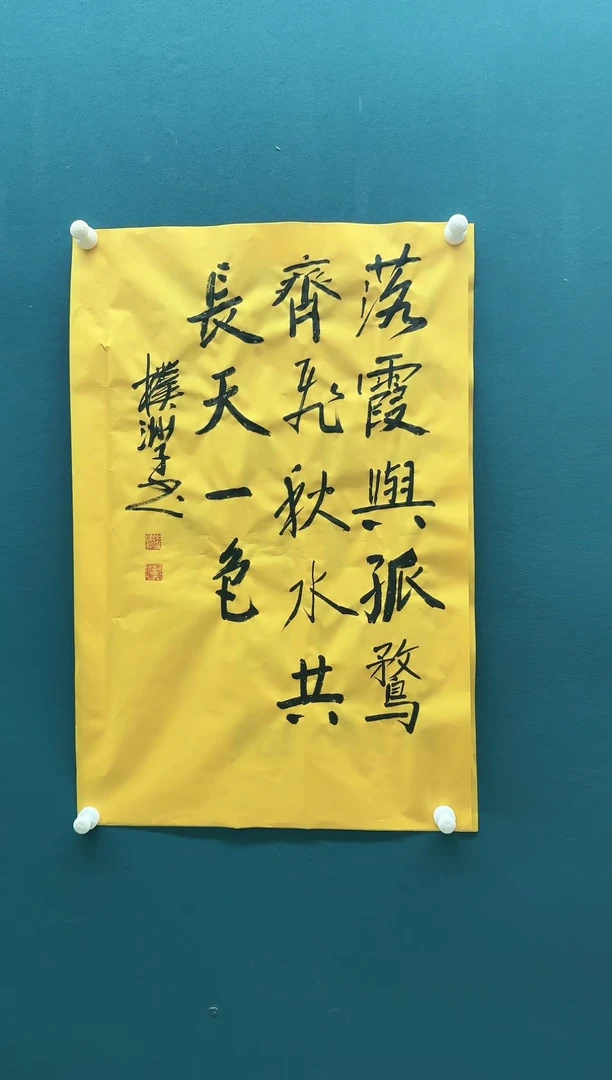 落霞與孤鶩
齊飛秋水共
長天一色
樸